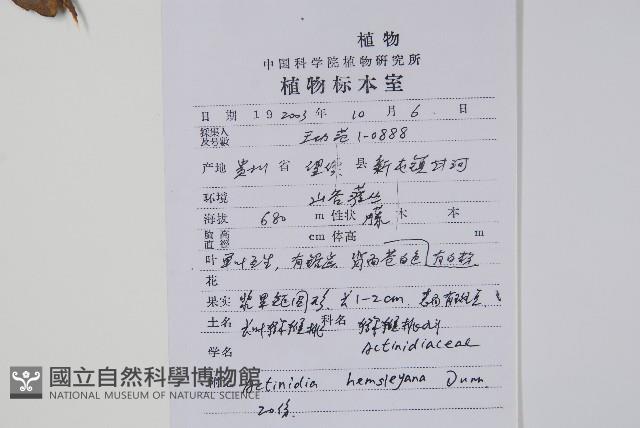 植物
中国科学院植物研究所
植物标本室
日 期 19 2003 年 10 月 6 日
採集人 及号数 1-0888
产地 贵州 省 望谟 县 新屯镇
环境 山谷灌丛
海拔 680 m 性状 藤 木 本
胸高直徑 cm 体高 m
叶 单叶互生, 有锯齿
花
果实 浆果 1-2cm
土名 长叶猕猴桃 科名 猕猴桃科
学名 Actinidiaceae
Actinidia hemsleyana Dunn.
20份
國立自然科學博物館
NATIONAL MUSEUM OF NATURAL SCIENCE